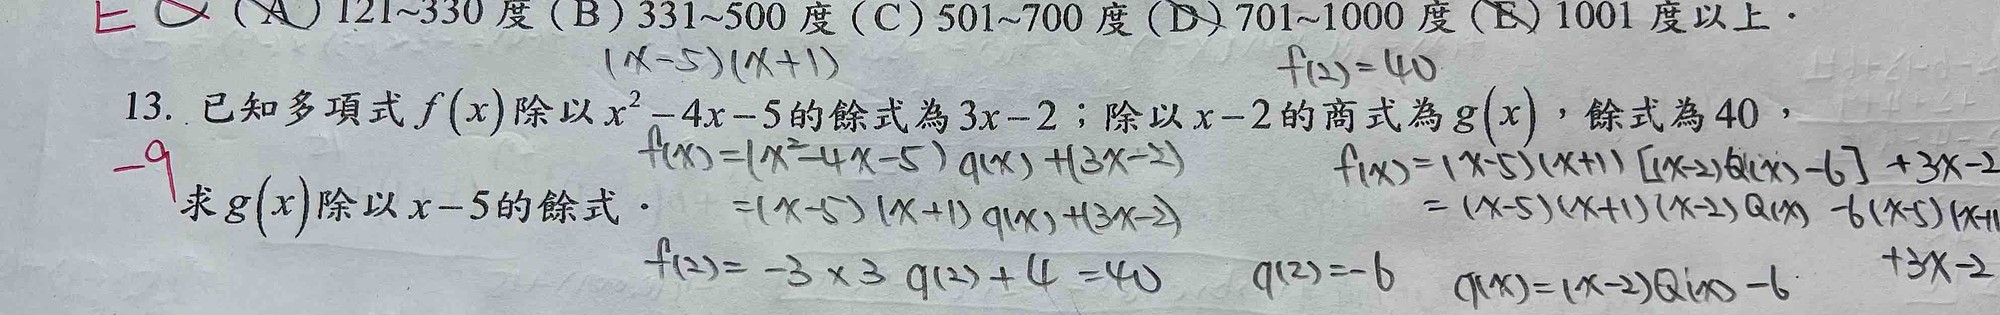 (A) 121~330 度 (B) 331~500 度 (C) 501~700 度 (D) 701~1000 度 (E) 1001 度以上．
(x-5)(x+1)
f(2)=40
13. 已知多項式 f(x) 除以 x² - 4x - 5 的餘式為 3x - 2；除以 x - 2 的商式為 g(x)，餘式為 40，
-9
f(x)=(x²-4x-5) q(x) +(3x-2)
f(x)=(x-5)(x+1) [(x-2)Q(x)-6] +3x-2
求 g(x) 除以 x - 5 的餘式．
=(x-5)(x+1) q(x)+(3x-2)
= (x-5)(x+1)(x-2) Q(x) -6(x-5)(x+1
+3x-2
f(2)= -3×3 q(2)+4 =40
q(2)=-6
q(x)=(x-2)Q(x)-6